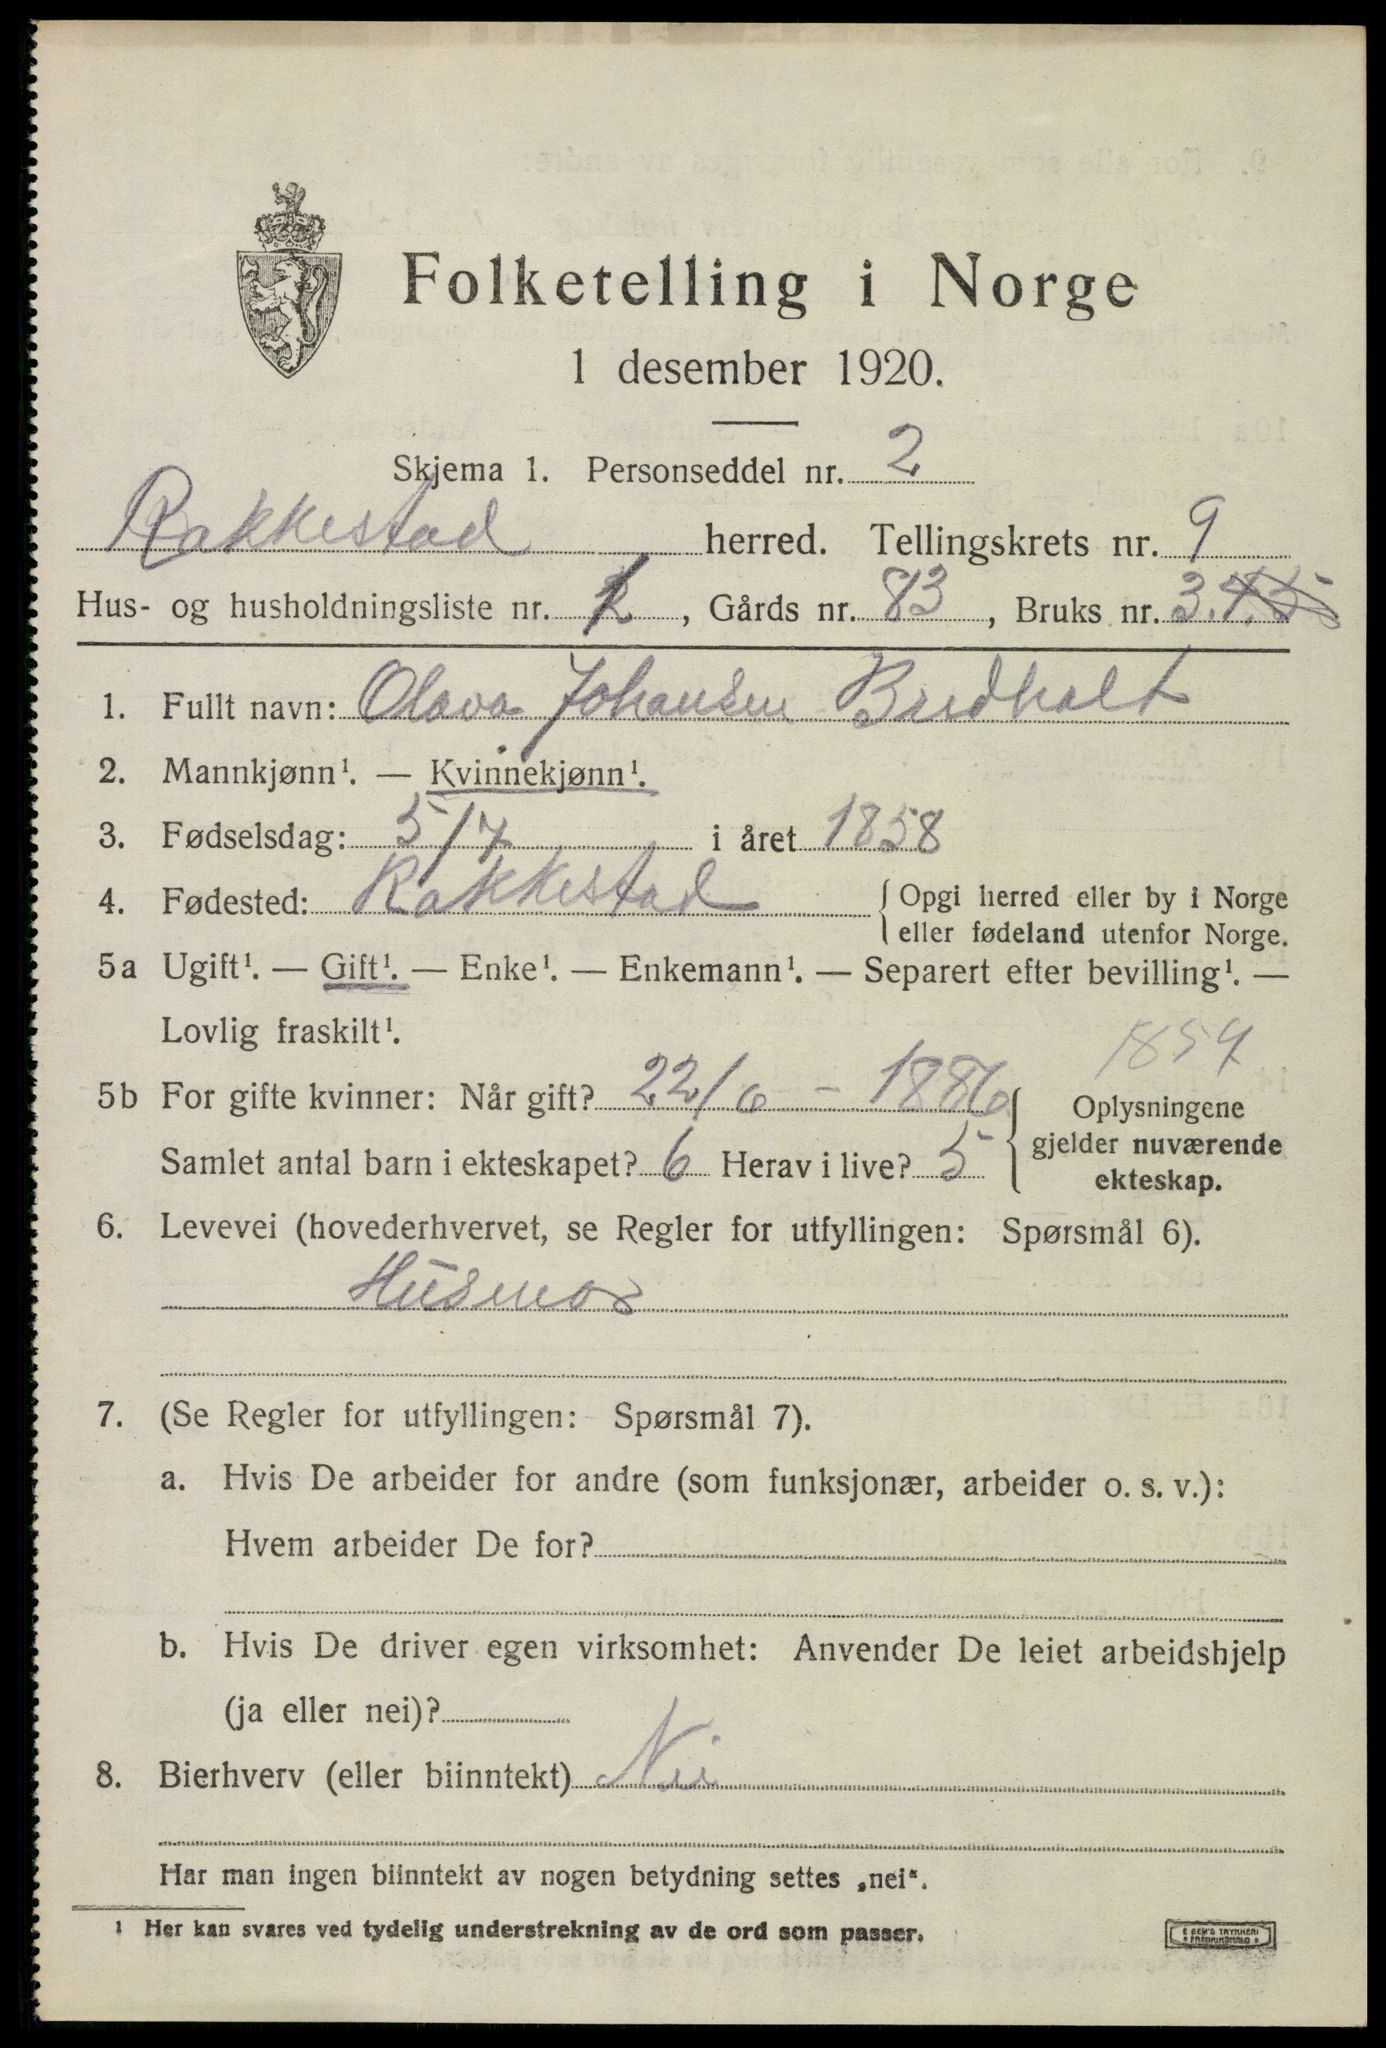 Folketelling i Norge
1 desember 1920.
Skjema 1. Personseddel nr. 2
Rakkestad herred. Tellingskrets nr. 9
Hus- og husholdningsliste nr. 2, Gårds nr. 83, Bruks nr. 3.4.5
1. Fullt navn: Olava Johansen Budholt
2. Mannkjønn¹. — Kvinnekjønn¹.
3. Fødselsdag: 5/7 i året 1858
4. Fødested: Rakkestad { Opgi herred eller by i Norge
eller fødeland utenfor Norge.
5a Ugift¹. — Gift¹. — Enke¹. — Enkemann¹. — Separert efter bevilling¹. —
Lovlig fraskilt¹.
1859
5b For gifte kvinner: Når gift? 22/6 - 1886 { Oplysningene
gjelder nuværende
ekteskap.
Samlet antal barn i ekteskapet? 6 Herav i live? 5
6. Levevei (hovederhvervet, se Regler for utfyllingen: Spørsmål 6).
Husmor
7. (Se Regler for utfyllingen: Spørsmål 7).
a. Hvis De arbeider for andre (som funksjonær, arbeider o. s. v.):
Hvem arbeider De for?
b. Hvis De driver egen virksomhet: Anvender De leiet arbeidshjelp
(ja eller nei)?
8. Bierhverv (eller biinntekt) Nei
Har man ingen biinntekt av nogen betydning settes „nei".
¹ Her kan svares ved tydelig understrekning av de ord som passer.
E SEM'S TRYKKERI
FREDRIKSHALD